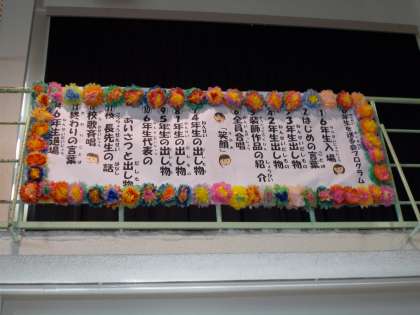 年生を送る会プログラム
6年生入場
はじめの言葉
3年生の出し物
2年生の出し物
装飾作品の紹介
全員合唱
「笑顔」
4年生の出し物
1年生の出し物
5年生の出し物
6年生代表の
あいさつと出し物
校長先生の話
校歌斉唱
終わりの言葉
6年生退場